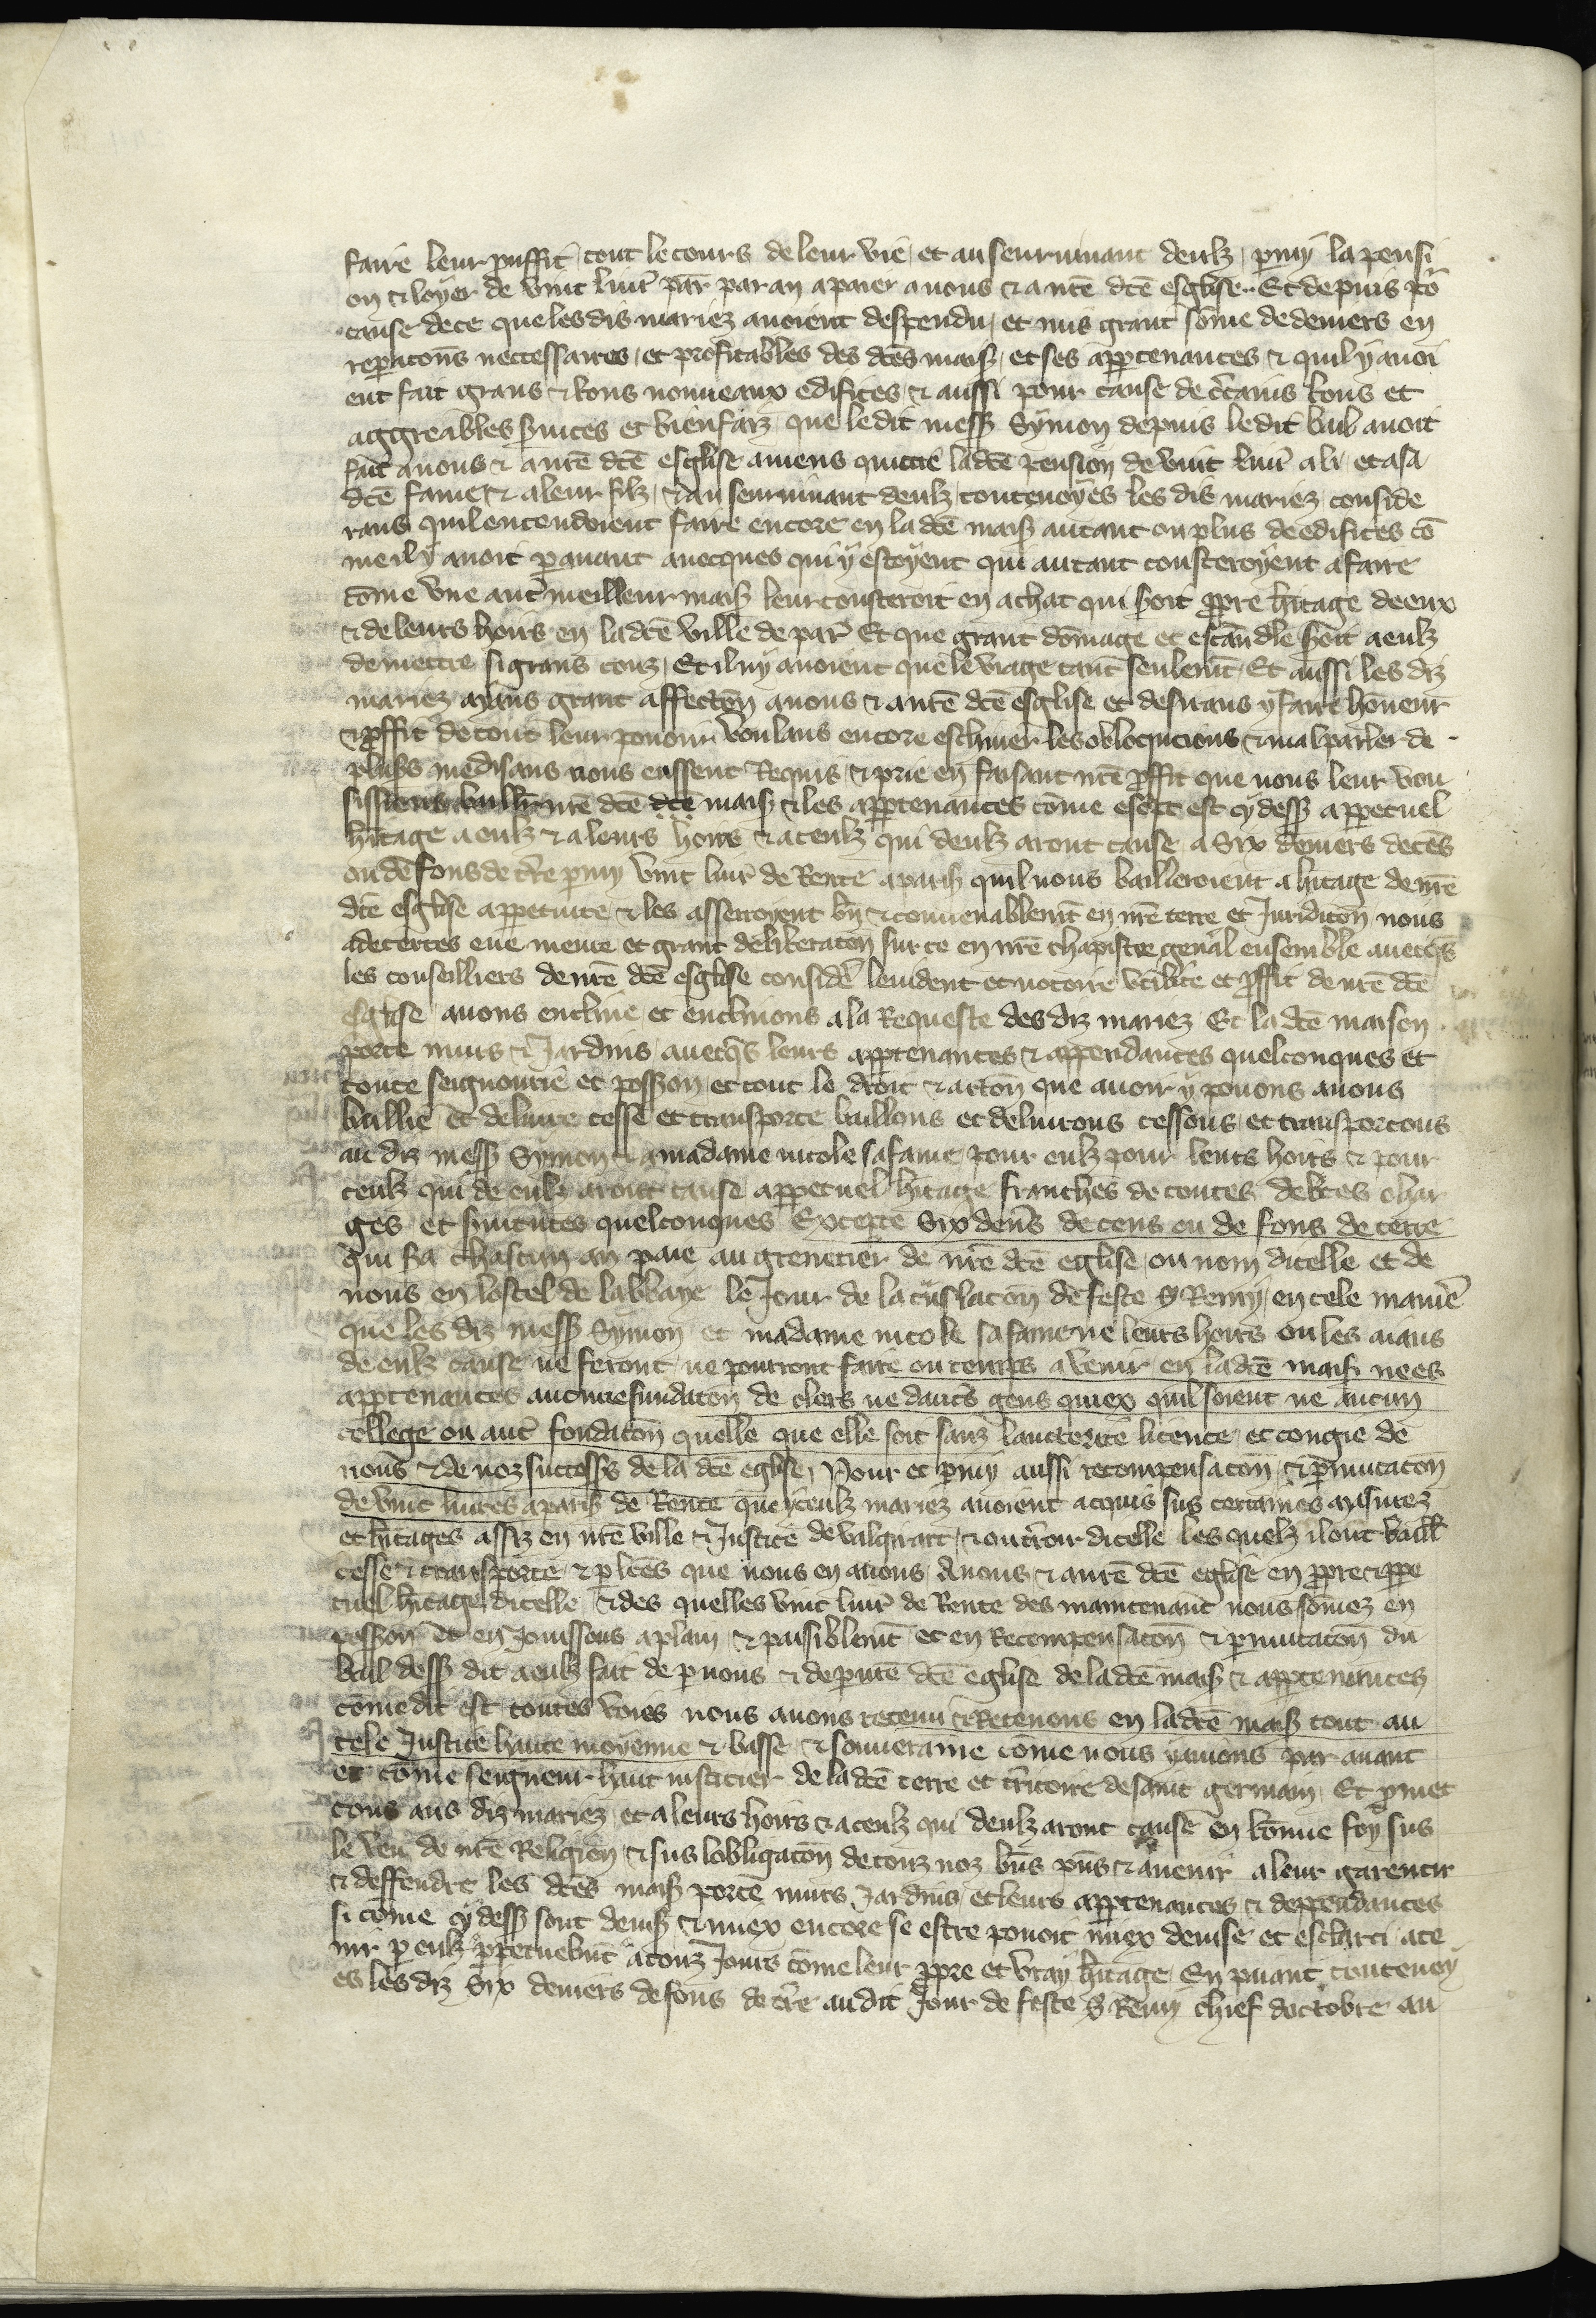 faire leur prouffit tout le cours de leur vie et au seurvivant deulz pmy la pensi
on & loyer de vint livr par par an a paier a nous & a nrē dcē esglise. Et depuis po
cause de ce que les dis mariez avoient despendu et mis grant sōme de deniers en
reparacōns neccessaires et profitables des dcēs mais et ses apptenances & quil y avoi
ent fait grans & bons nouveaux edifices & aussi pour cause de ctains bons et
aggreables svices et bienfaiz que le dit mess Symon depuis le dit bail avoit
fait a nous & a nrē dcē esglise aviens quictie la dcē pension de vint livr a li et a sa
dcē fame & a leur filz & au seurvivant deulz toutevoyes les dis mariez conside
rans quil entendoient faire encore en la dcē mais autant ou plus de edifices cō
me il y avoit pavant avecques qui y estoyent qui autant cousteroyent a faire
cōme une autr meilleur mais leur cousteroit en achat qui soit ppre hitage de eux
& de leurs hoirs en la dcē ville de par Et que grant dōmage et escandle soit a eulz
de mettre si grans couz Et il ny avoient que le viage tant seulemt Et aussi les diz
mariez ayans grant affectōn a nous & a nrē dcē esglise et desirans y faire hōneur
& pffit de tout leur pouoir voulans encore eschiver les oblocucions & mal parler de
plus mesdisans nous eussent Requis & prie en faisant nrē pffit que nous leur vou
sissiens baillr nrē dcē dcē mais & les apptenances cōme escpt est cy dess a ppetuel
hitage a eulz & a leurs hoirs & a ceulz qui deulz aront cause a Six deniers de cēs
ou de fons de tre pmy vint livr de Rente a paris quil nous bailleroient a hitage de nrē
dcē esglise a ppetuite & les asserroyent bn & convenablemt en nrē terre et Juridicōn nous
adecertes eue meure et grant deliberacōn sur ce en nrē chapistre genal ensemble avecqs
les conseilliers de nrē dcē esglise consider levident et notoire utilite et pffit de nrē dcē
esglise avons encline et enclinons a la Requeste des diz mariez Et la dcē maison
porte murs & Jardins avecqs leurs apptenances & appendances quelconques et
toute seignourie et posson et tout le droit & actōn que avoir y pouons avons
baillie et delivre cesse et transporte baillons et delivrons cessons et transportons
au diz mess Symon & a madame nicole sa fame pour eulz pour leurs hoirs & pour
ceulz qui de eulz aront cause a ppetuel hitage franches de toutes debtes char
ges et svitutes quelconques Excepte Six dens de cens ou de fons de terre
qui sra chascun an paie au grenetier de nrē dcē eglise ou nom dicelle et de
nous en lostel de labbaye le Jour de la feste S Remy en tele manie
que les diz mess Symon et madame nicole sa fame ne leurs hoirs ou les aians
de eulz cause ne feront ne pourront faire ou temps a venir en la dcē mais ne es
apptenances aucune fundacōn de clers ne dautrs gens quiex quil soient ne aucun
college ou autr fondacōn quelle que elle soit sanz lauctorite licence et congie de
nous & de noz successrs de la dcē eglise Pour et pmy aussi recompensacōn & pmutacōn
de vint livres a paris de Rente que yceulz mariez avoient acquis sus certaines masurez
et hitages assiz en nrē ville & Justice de valgirart & entour dicelle les quelz il ont baill
cesse & transporte & plcēs que nous en avons a nous & a nrē dcē eglise en ppre & ppe
tuel hitage dicelle & des quelles vint livr de Rente des maintenant nous sōmez en
posson et en Jouissons a plain & paisiblemt et en Recompensacōn & pmutacōn du
bail dess dit a eulz fait de p nous & de p nrē dcē eglise de la dcē mais & apptenances
cōme dit est toutes voies nous avons retenu & Retenons en la dcē mais tout au
tele Justice haute moyenne & basse & souveraine cōme nous y avions par avant
et cōme seigneur haut iusticier de la dcē terre et tritoire de saint germain Et pmet
tons aus diz mariez et a leurs hoirs & a ceulz qui deulz aront cause en bōnne foy sus
le veu de nrē Religion & sus lobligacōn de touz noz bns pns & a venir a leur garentir
& deffendre les dcēs mais porte murs Jardins et leurs apptenances & deppendances
si cōme cy dess sont devis & miex encore se estre pouoit miex devise et esclarci a te
nir p eulz ppetuelmt a touz Jours cōme leur ppre et vray hitage En paiant toutevoy
es les diz Six deniers de fons de tre au dit Jour de feste S Remy chief doctobre au